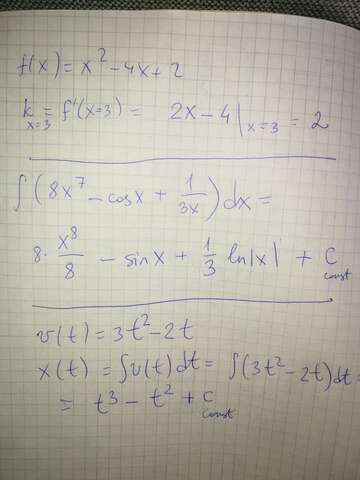 f(x) = x² - 4x + 2
k = f'(x=3) = 2x - 4 | x=3 = 2
x=3
∫ (8x⁷ - cosx + 1/3x) dx =
8 · x⁸/8 - sinx + 1/3 ln|x| + C
const
v(t) = 3t² - 2t
x(t) = ∫v(t)dt = ∫(3t² - 2t)dt =
= t³ - t² + C
const